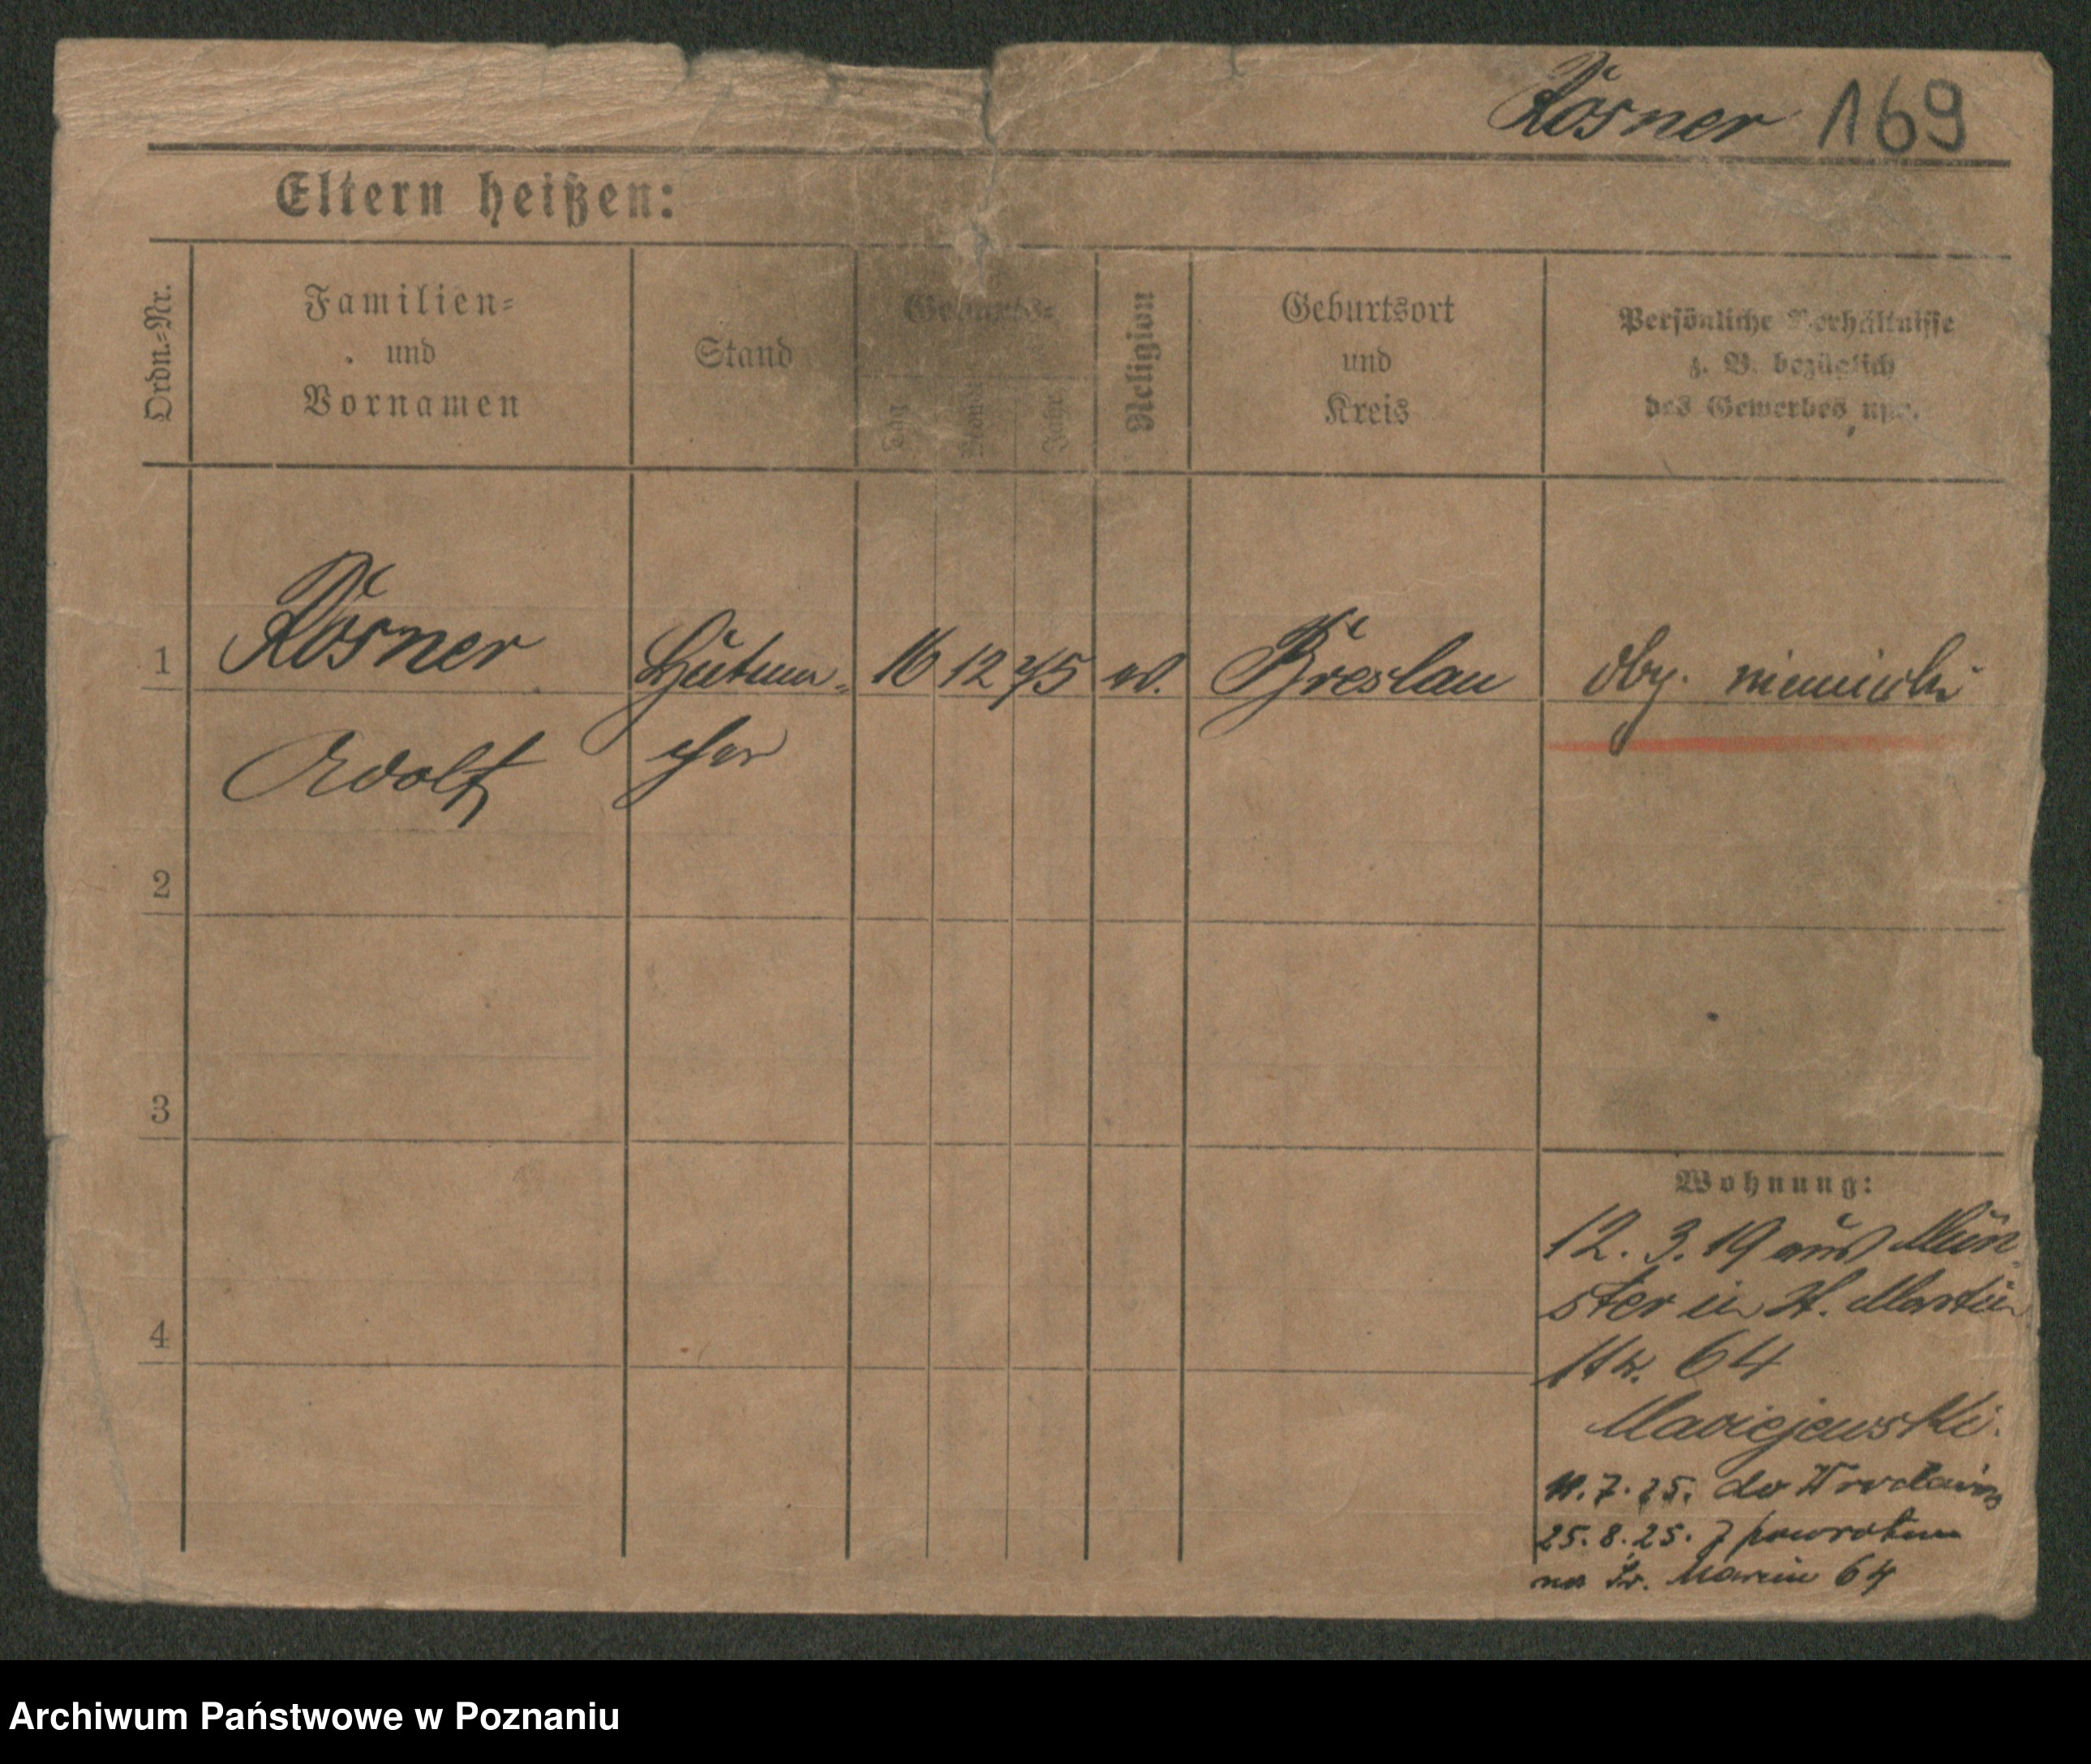 Rösner 169
Eltern heißen:
Ordn.=Nr.
Familien=
und
Vornamen
Stand
Geburts=
Tag
Monat
Jahr
Religion
Geburtsort
und
Kreis
Persönliche Verhältnisse
z. B. bezüglich
des Gewerbes usw.
1 Rösner Hutma= 16 12 75 ev. Breslau oby. niemiecki
Adolf cher
2
3
4
Wohnung:
12. 3. 19 aus Mün
ster in St. Martin
str. 64
Maciejewski.
11. 7. 25. do Wrocławia
25. 8. 25. z powrotem
na Św. Marcin 64
Archiwum Państwowe w Poznaniu